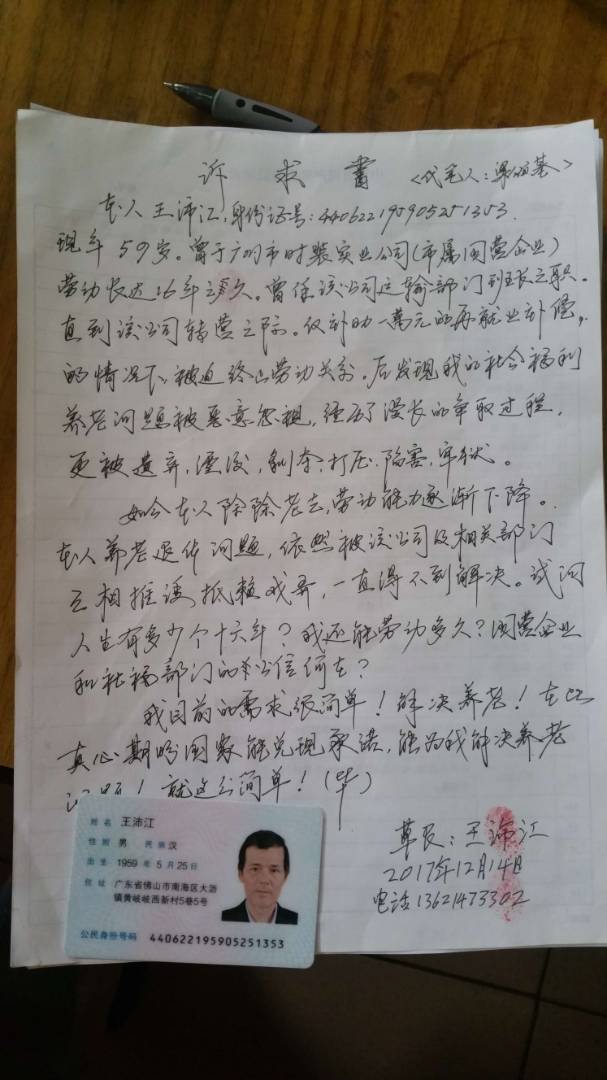 诉求书 <代笔人：梁
本人王沛江，身份证号：440622195905251353.
现年59岁。曾于广州市时装实业公司(市属国营企业)
劳动长达16年之久。曾任该公司运输部门副班长之职。
直到该公司转营之际。仅补助一万元的再就业补偿，
的情况下，被迫终止劳动关系。后发现我的社会福利
养老问题被恶意忽视，经历了漫长的争取过程，
更被遗弃，湮没，剥夺，打压，陷害，牢狱。
如今本人除除老去，劳动能力逐渐下降。
本人养老退休问题，依然被该公司及相关部门
互相推诿抵赖戏弄，一直得不到解决。试问
人生有多少个十六年？我还能劳动多久？国营企业
和社福部门的公信何在？
我目前的需求很简单！解决养老！在此
真心期盼国家能兑现承诺，能为我解决养老
问题！就这么简单！(毕)
草民：王沛江
2017年12月14日
电话13621473302
姓名 王沛江
性别 男 民族 汉
出生 1959 年 5 月 25 日
住址 广东省佛山市南海区大沥
镇黄岐岐西新村5巷5号
公民身份号码 440622195905251353